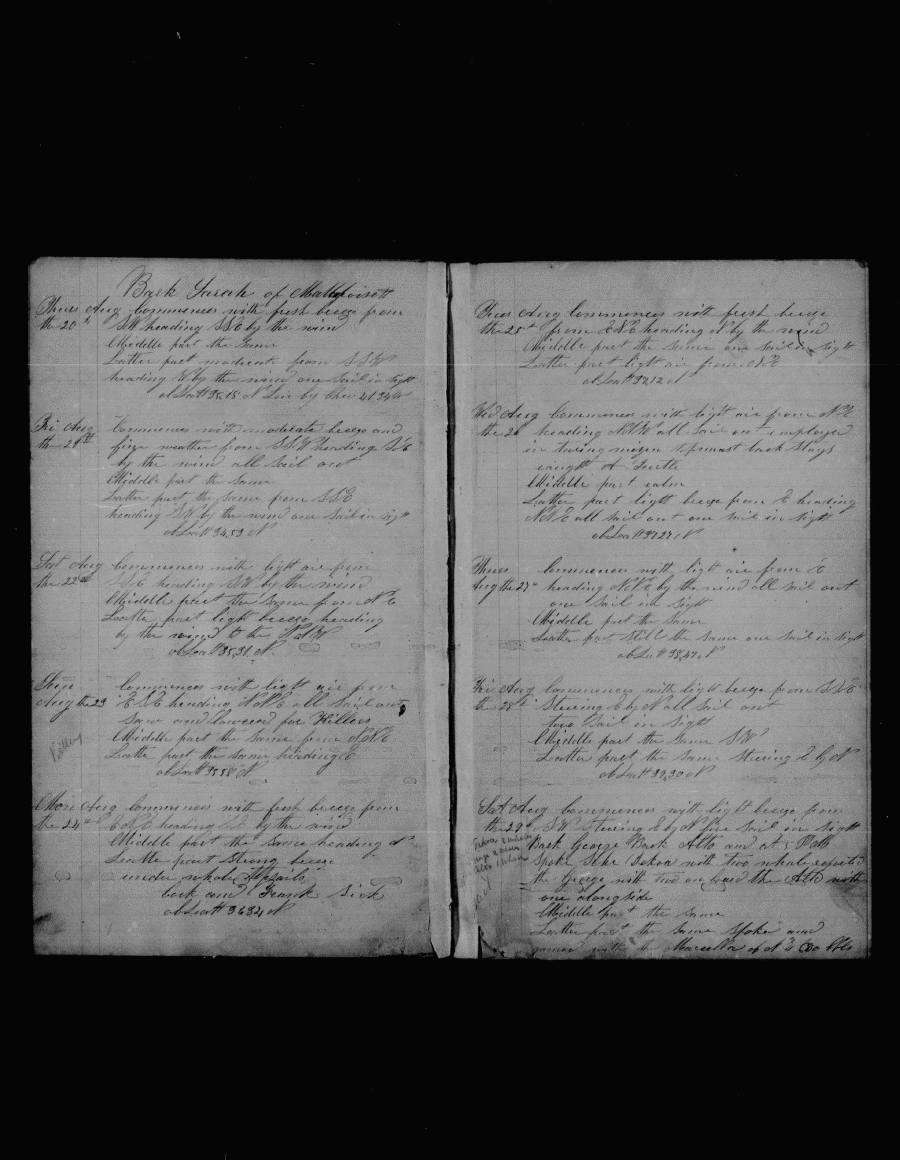 Bark Sarah of Mattapoisett
Thurs Aug Commences with fresh breeze from
the 20th SW heading SSE by the wind
Middle part the Same
Latter part moderate from SSW
heading W by the wind one Sail in sight
ob Latt 35,15 N Lon by Chro
Fri Aug Commences with moderate breeze and
the 21st fine weather from SSW heading SE
by the wind all Sail out
Middle part the Same
Latter part the Same from SSE
heading SW by the wind one Sail in sight
ob Latt 34,53 N
Sat Aug Commences with light air from
the 22nd SSE heading SW by the wind
Middle part the Same from NE
Latter part light breeze heading
by the wind to the NNW
ob Latt 35,31 N
Sun Commences with light air from
Aug the 23 ESE heading NNE all Sail out
Saw and lowered for Killers
Middle part the Same from NNE
Latter part the Same heading E
ob Latt 35,58 N
Mon Aug Commences with fresh breeze from
the 24th ENE heading SE by the wind
Middle part the Same heading N
Latter part Strong breeze
under whole topsails
cook and Frank Sick
ob Latt 36,34 N
Tues Aug Commences with fresh breeze
the 25th from ENE heading N by the wind
Middle part the Same one Sail in sight
Latter part light air from NE
ob Latt 37,12 N
Wed Aug Commences with light air from NE
the 26 heading NNW all Sail out employed
in turning mizen topmast back Stays
caught 1 Turtle
Middle part calm
Latter part light breeze from E heading
NNE all Sail out one Sail in sight
ob Latt 37,27 N
Thurs Commences with light air from E
Aug the 27th heading NNE by the wind all Sail out
one Sail in sight
Middle part the Same
Latter part Still the Same one Sail in sight
ob Latt 38,47 N
Fri Aug Commences with light breeze from SSE
the 28th Steering E by N all Sail out
two Sail in sight
Middle part the Same SW
Latter part the Same Steering E by N
ob Latt 39,30 N
Sat Aug Commences with light breeze from
the 29th SW Steering E by N five Sail in sight
Bark George Bark Alto and at 5
Spoke Schr with two whale reported
the George with two on board the Alto with
one along side
Middle part the Same
Latter part the Same Spoke and
gamed with the Marcella of N B